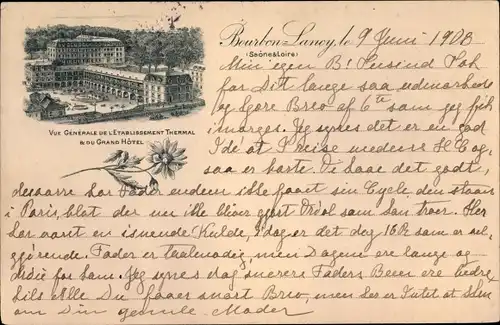 Bourbon-Lancy, le 9 Juni 1908
(Saône & Loire)
Min egen B! Tusind Tak
for Dit lange saa udmærkede
og kære Brev af 6te som jeg fik
imorges. Jeg synes det er en god
Ide at I rejse medens
saa er borte. Vi have det godt,
VUE GÉNÉRALE DE L'ETABLISSEMENT THERMAL
& DU GRAND HÔTEL
desværre har Fader endnu ikke faaet sin Cycle den staar
i Paris, blot der nu ikke bliver gjort som han troer. Her
har været en isnende Kulde, i dag er det dog 16 R som er
gørende. Fader er taalmodig men Dagene ere lange og
for ham. Jeg synes dog Faders Been ere bedre,
hils Alle Du faaer snart Brev, men her er Intet at
om Din gamle Moder